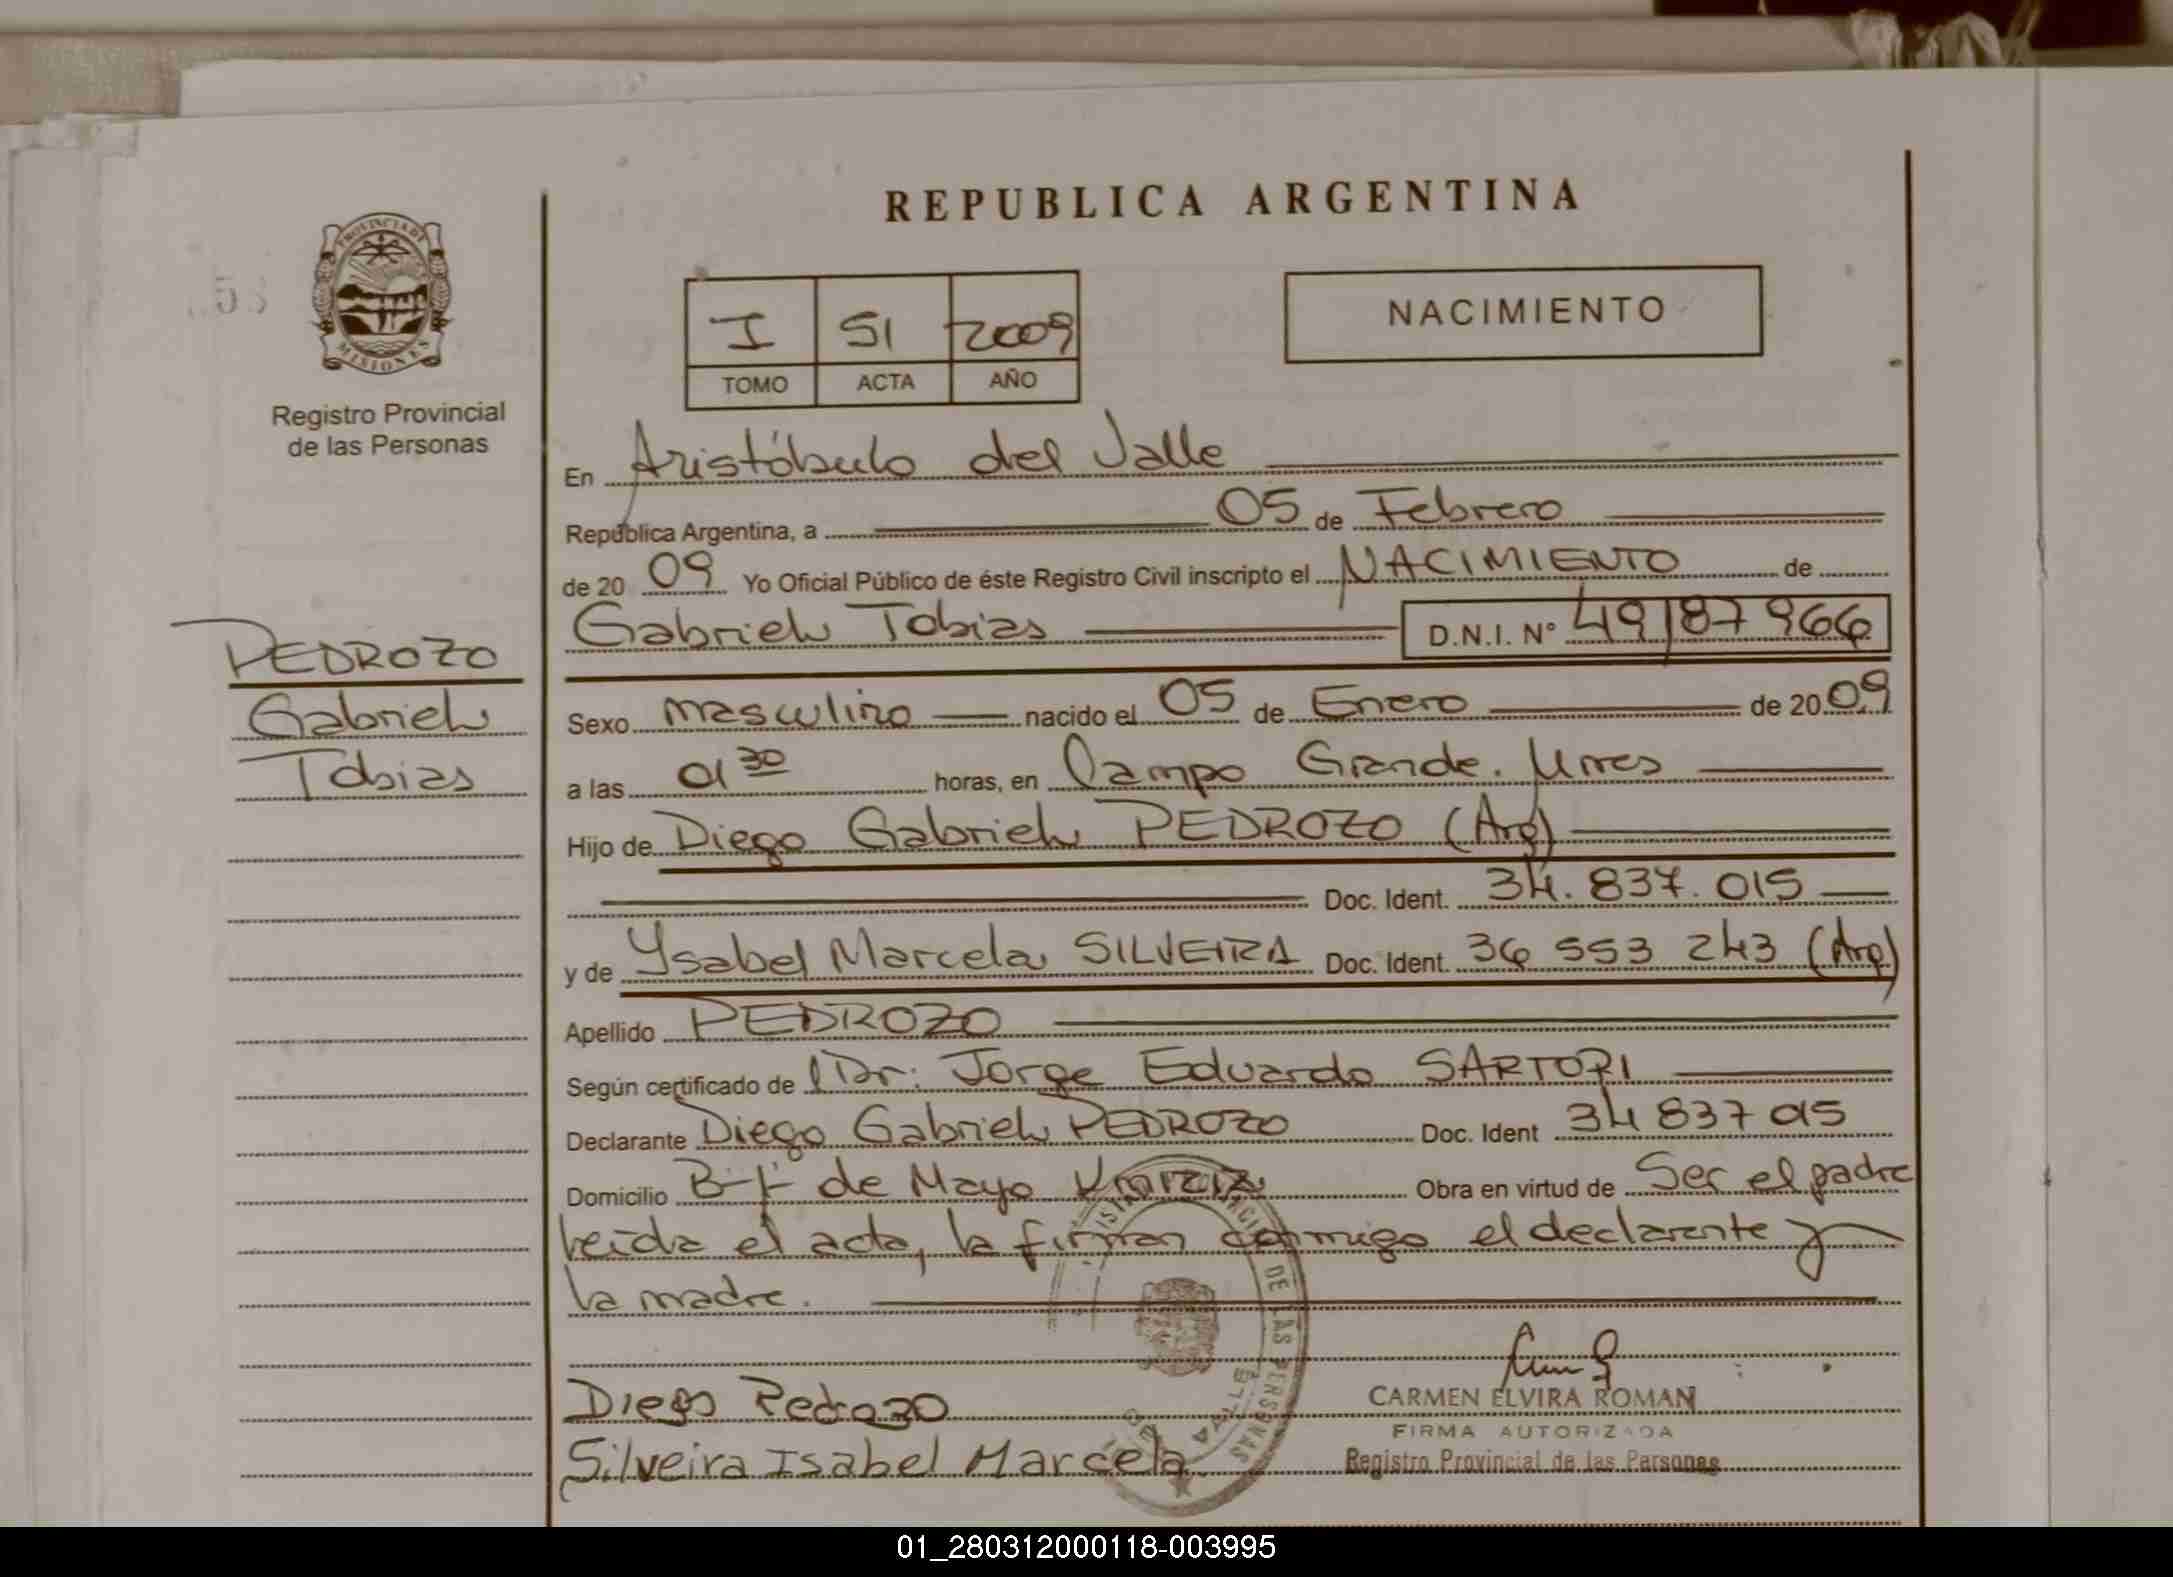 REPUBLICA ARGENTINA
PROVINCIA DE
MISIONES
Registro Provincial
de las Personas
I 51 2009
TOMO ACTA AÑO
NACIMIENTO
En Aristóbulo del Valle
República Argentina, a 05 de Febrero
de 20 09 Yo Oficial Público de éste Registro Civil inscripto el NACIMIENTO de
Gabriel Tobias D.N.I. Nº 49187966
PEDROZO
Gabriel
Tobias
Sexo masculino nacido el 05 de Enero de 20 09
a las 01 30 horas, en Campo Grande. Mnes
Hijo de Diego Gabriel PEDROZO (Arg)
Doc. Ident. 34.837.015
y de Ysabel Marcela SILVEIRA Doc. Ident. 36 553 243 (Arg)
Apellido PEDROZO
Según certificado de Dr. Jorge Eduardo SARTORI
Declarante Diego Gabriel PEDROZO Doc. Ident 34 837 015
Domicilio de Mayo Obra en virtud de Ser el padre
leida el acta, la firman conmigo el declarante y
la madre.
DE LAS PERSONAS
Diego Pedrozo
Silveira Isabel Marcela
CARMEN ELVIRA ROMAN
FIRMA AUTORIZADA
Registro Provincial de las Personas
01_280312000118-003995